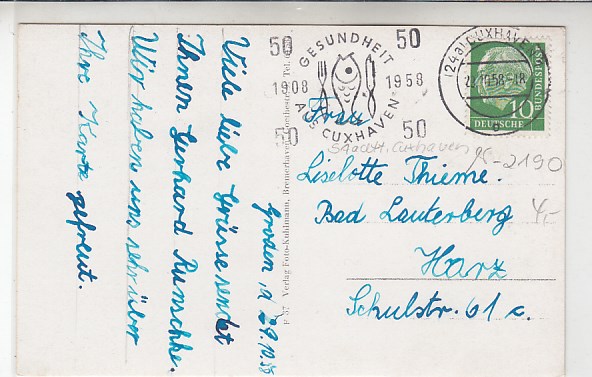 Groden, d 29.10.58
Viele liebe Grüsse sendet
Ihnen Gerhard Runschke.
Wir haben uns sehr über
Ihre Karte gefreut.
F 57 Verlag Foto-Kuhlmann, Bremerhaven, Tel.
50 50
GESUNDHEIT
1908 1958
AUS CUXHAVEN
50 50
(24a) CUXHAVEN
29.10.58-18
10
DEUTSCHE
BUNDESPOST
Frau
Stadtt. Cuxhaven
95-2190
Liselotte Thieme.
4,-
Bad Lauterberg
Harz
Schulstr. 61 c.